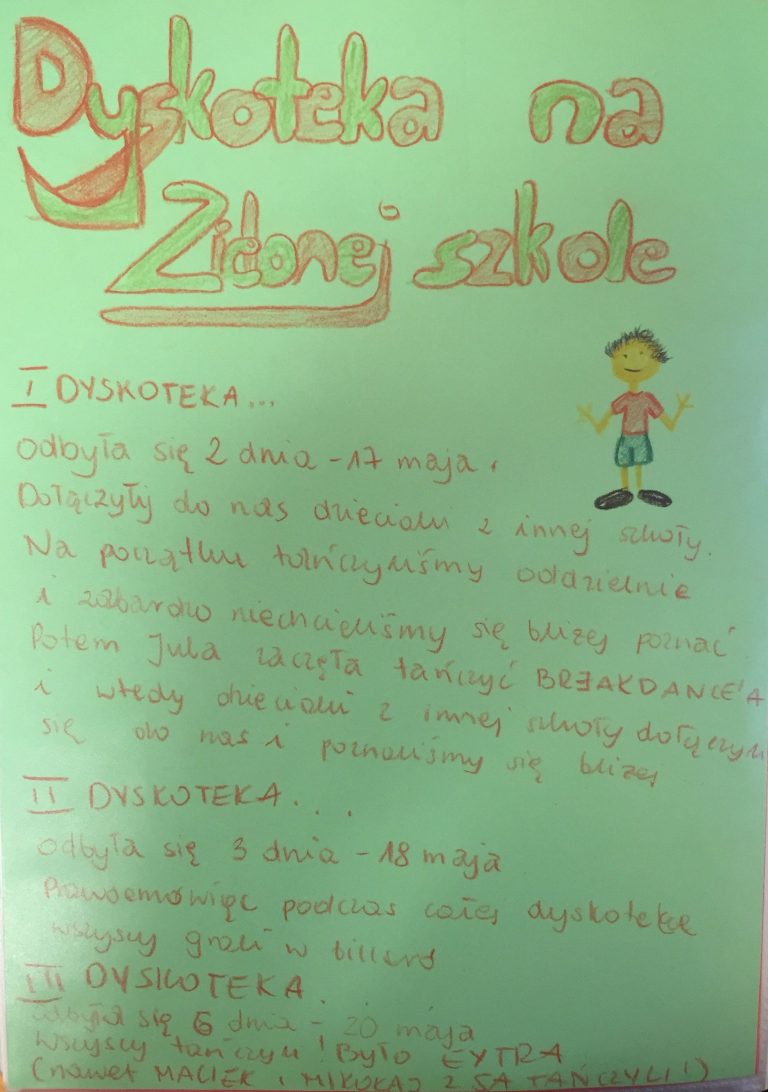 Dyskoteka na
Zielonej szkole
I DYSKOTEKA...
odbyła się 2 dnia - 17 maja.
Dołączyłij do nas dzieciaki z innej szkoły.
Na początku tańczyliśmy oddzielnie
i zabardzo niechcieliśmy się bliżej poznać
Potem Jula zaczęła tańczyć BREAKDANCE'A
i wtedy dzieciaki z innej szkoły dołączyli
się do nas i poznaliśmy się bliżej
II DYSKOTEKA...
odbyła się 3 dnia - 18 maja
Prawdemówięc podczas całej dyskotekce
wszyscy grali w billard
III DYSKOTEKA.
odbyła się 6 dnia - 20 maja
wszyscy tańczyli! Było EYTRA
(nawet MACIEK i MIKOŁAJ z 5A TAŃCZYLI!)